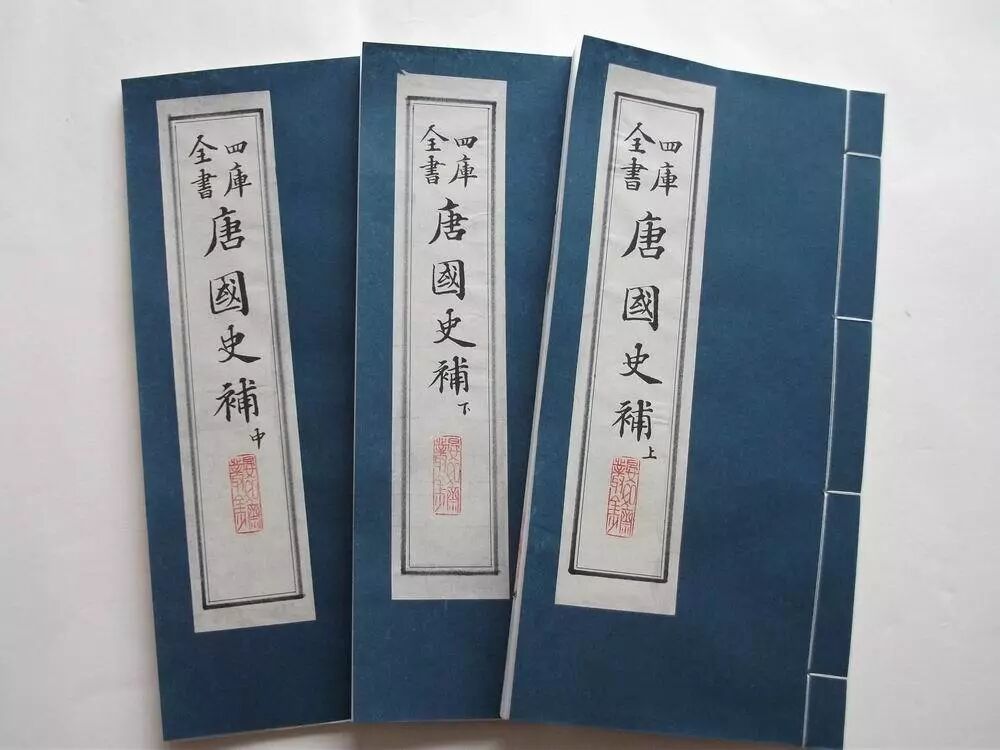 四庫
全書
唐國史補中
四庫
全書
唐國史補下
四庫
全書
唐國史補上